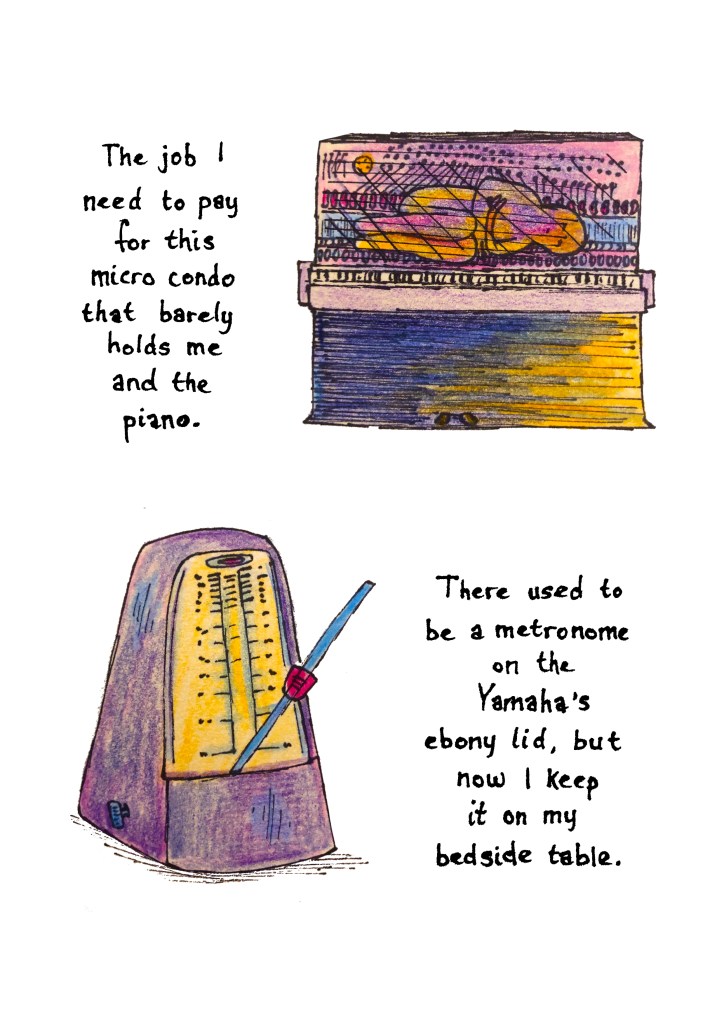 The job I
need to pay
for this
micro condo
that barely
holds me
and the
piano.
There used to
be a metronome
on the
Yamaha's
ebony lid, but
now I keep
it on my
bedside table.